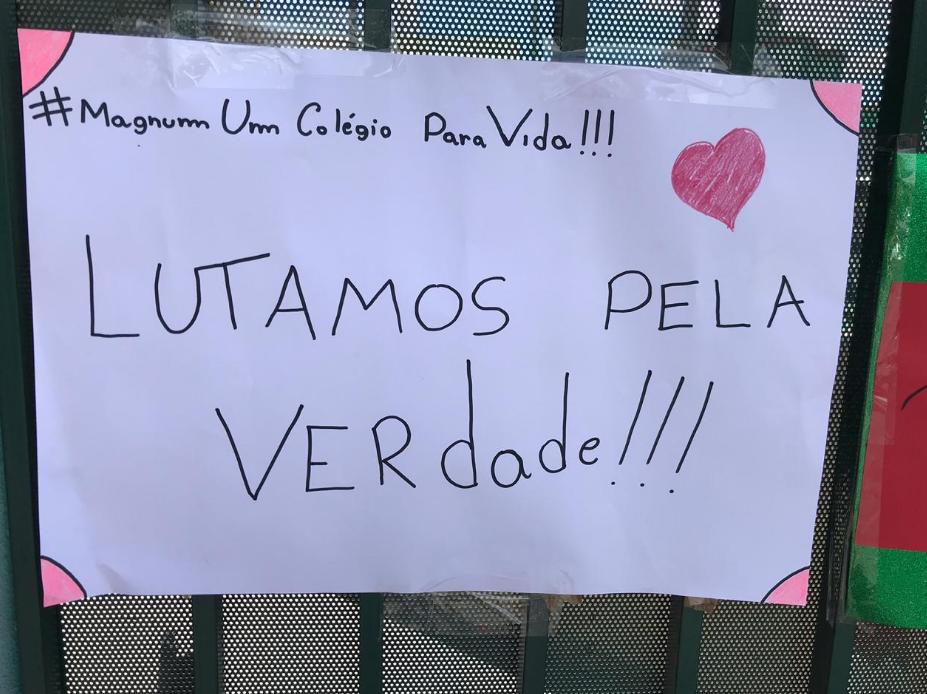 #Magnum Um Colégio Para Vida!!!
LUTAMOS PELA
VERdade!!!